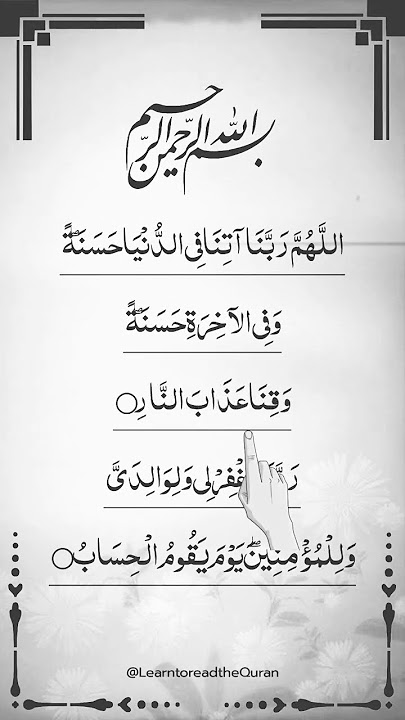 بسم الله الرحمن الرحيم
اللَّهُمَّ رَبَّنَا آتِنَا فِي الدُّنْيَا حَسَنَةً
وَفِي الْآخِرَةِ حَسَنَةً
وَقِنَا عَذَابَ النَّارِ
وَلِوَالِدَيَّ
وَلِلْمُؤْمِنِينَ يَوْمَ يَقُومُ الْحِسَابُ
@LearntoreadtheQuran